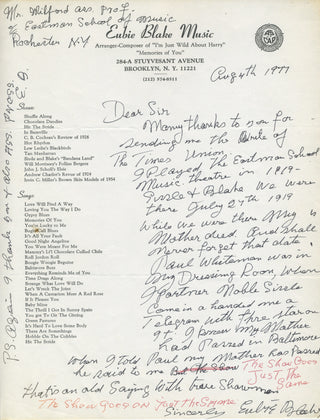 Mr. Milford ass. Prof.
c/o Eastman School of Music
Rochester NY
Eubie Blake Music
Arranger-Composer of "I'm Just Wild About Harry"
"Memories of You"
284-A STUYVESANT AVENUE
BROOKLYN, N. Y. 11221
(212) 574-8511
ASCAP
Aug 4th 1977
Shows
Shuffle Along
Chocolate Dandies
Hit The Stride
In Bamville
C. B. Cochran's Review of 1926
Hot Rhythm
Lew Leslie's Blackbirds
Tan Manhattan
Birds and Blake's "Bandana Land"
Will Morrissey's Follies Bergere
John J. Scholl's Elsie
Andrew Charlot's Revue of 1924
Irvin C. Miller's Brown Skin Models of 1954
Songs
Love Will Find A Way
Loving You The Way I Do
Gypsy Blues
Memories Of You
You're Lucky to Me
Blues
It's All Your Fault
Good Night Angeline
You Were Meant For Me
Mammy's Li'l Chocolate Cullud Chile
Roll Jordon Roll
Boogie Woogie Beguine
Baltimore Buzz
Everything Reminds Me of You
Time Drags Along
Strange What Love Will Do
Let's Wreck The Joint
When A Cameron Meets A Red Rose
If It Please You
Baby Mine
The Thrill I Got In Sunny Spain
You got to Git the Gittin
Green Pastures
It's Hard To Love Some Body
These Are Somethings
Hobble On The Cobbles
Hit The Stride
Dear Sir
Many thanks to you for
sending me the Write of
The Times Union.
I Played The Eastman School
Music Theatre in 1919-
Sissle & Blake We were
there July 27th 1919
While we were there My
Mother died. And I shall
Never forget that date.
Paul Whiteman was in
My Dressing Room, when
Partner Noble Sissle
Came in & handed me a
Telegram with three stars on
it. I knew My Mother
had Passed in Baltimore
When I told Paul my Mother Has Passed
he said to me The Show Goes
Just The
Same
that's an old Saying with true Showmen
The Show Goes on Just The Same
Sincerely Eubie Blake
P.S. Again I thank you & also ass. Profess.
E.B.